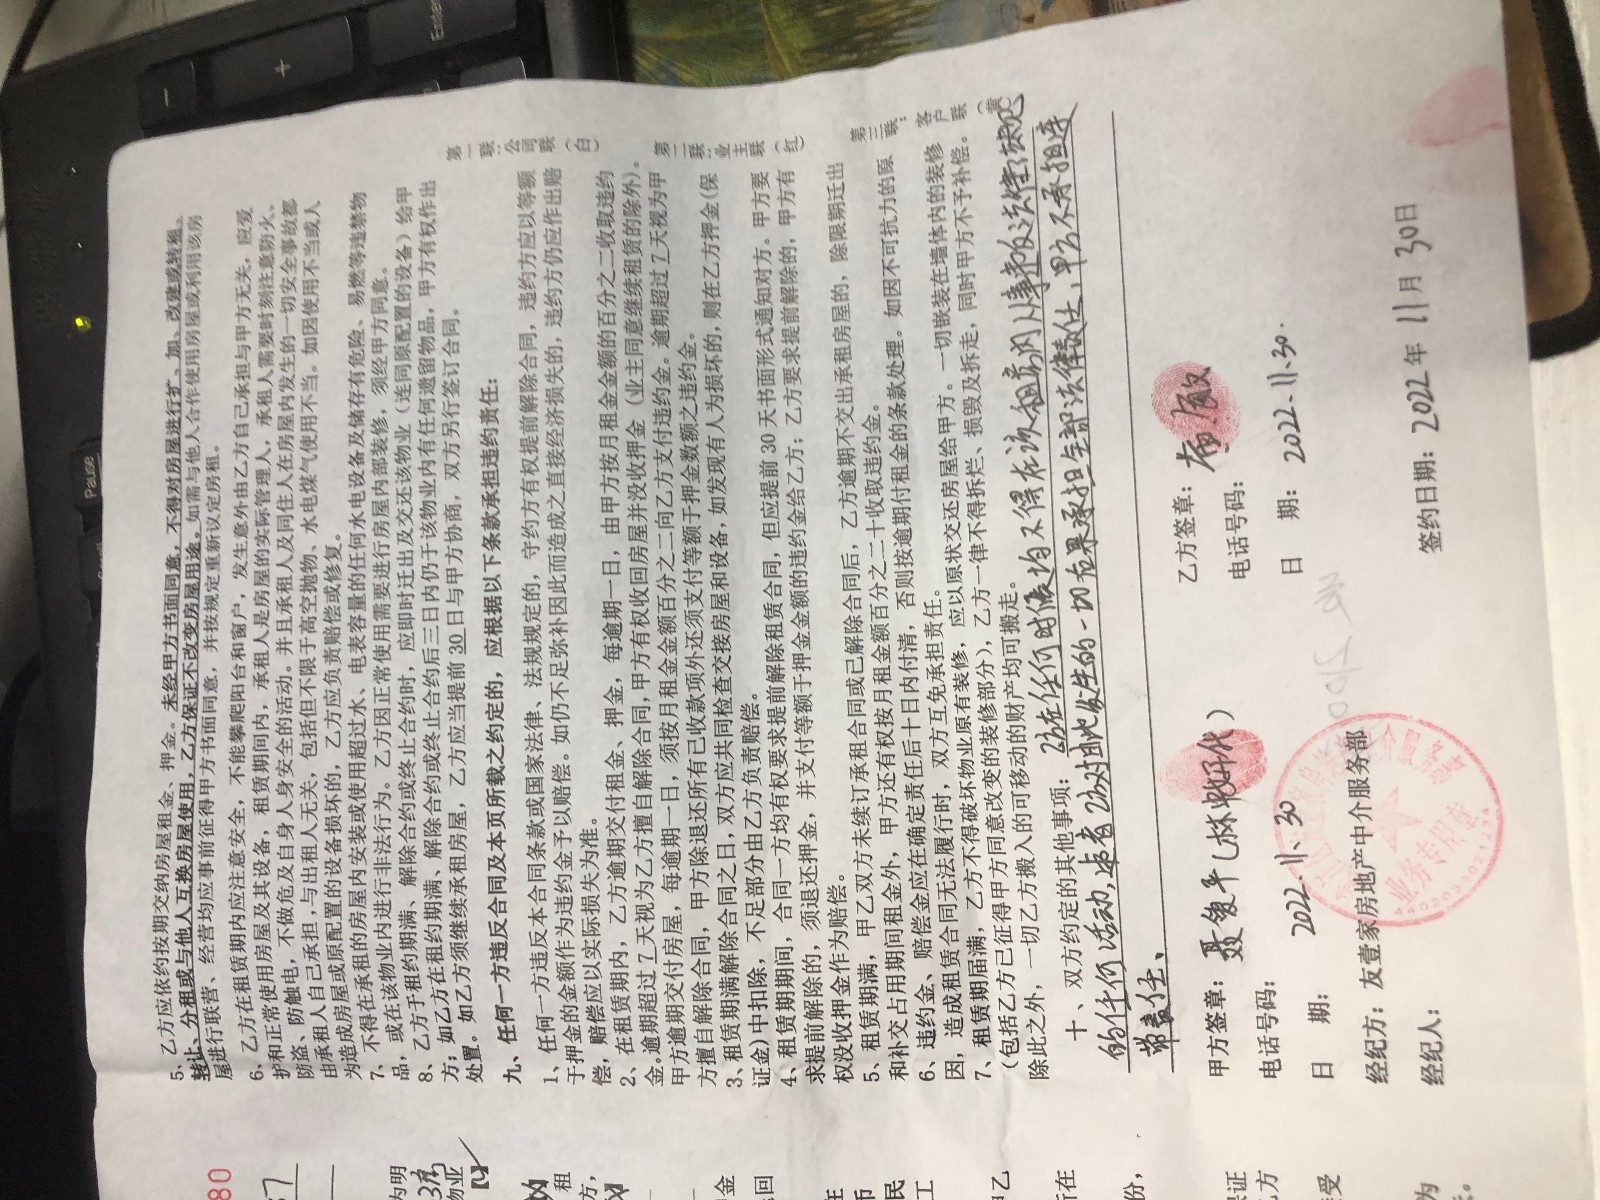 5、乙方应依约按期交纳房屋租金、押金。未经甲方书面同意，不得对房屋进行扩、加、改建或转租、
转让、分租或与他人互换房屋使用，乙方保证不改变房屋用途。如需与他人合作使用房屋或利用该房
屋进行联营、经营均应事前征得甲方书面同意，并按规定重新议定房租。
6、乙方在租赁期内应注意安全，不能攀爬阳台和窗户，发生意外由乙方自己承担与甲方无关。应爱
护和正常使用房屋及其设备，租赁期间内，承租人是房屋的实际管理人，承租人需要时刻注意防火、
防盗、防触电，不做危及自身人身安全的活动。并且承租人及同住人在房屋内发生的一切安全事故都
由承租人自己承担，与出租人无关，包括但不限于高空抛物、水电煤气使用不当。如因使用不当或人
为造成房屋或原配置的设备损坏的，乙方应负责赔偿或修复。
7、不得在承租的房屋内安装或使用超过水、电表容量的任何水电设备及储存有危险、易燃等违禁物
品，或在该物业内进行非法行为。乙方因正常使用需要进行房屋内部装修，须经甲方同意。
8、乙方于租约期满、解除合约或终止合约时，应即时迁出及交还该物业（连同原配置的设备）给甲
方；如乙方在租约期满、解除合约或终止合约后三日内仍于该物业内有任何遗留物品，甲方有权作出
处置。如乙方须继续承租房屋，乙方应当提前30日与甲方协商，双方另行签订合同。
九、任何一方违反合同及本页所载之约定的，应根据以下条款承担违约责任：
1、任何一方违反本合同条款或国家法律、法规规定的，守约方有权提前解除合同，违约方应以等额
于押金的金额作为违约金予以赔偿。如仍不足弥补因此而造成之直接经济损失的，违约方仍应作出赔
偿，赔偿应以实际损失为准。
2、在租赁期内，乙方逾期交付租金、押金，每逾期一日，由甲方按月租金金额的百分之二收取违约
金。逾期超过7天视为乙方擅自解除合同，甲方有权收回房屋并没收押金（业主同意继续租赁的除外）。
甲方逾期交付房屋，每逾期一日，须按月租金金额百分之二向乙方支付违约金。逾期超过7天视为甲
方擅自解除合同，甲方除退还所有已收款项外还须支付等额于押金数额之违约金。
3、租赁期满解除合同之日，双方应共同检查交接房屋和设备，如发现有人为损坏的，则在乙方押金(保
证金)中扣除，不足部分由乙方负责赔偿。
4、租赁期期间，合同一方均有权要求提前解除租赁合同，但应提前30天书面形式通知对方。甲方要
求提前解除的，须退还押金，并支付等额于押金金额的违约金给乙方；乙方要求提前解除的，甲方有
权没收押金作为赔偿。
5、租赁期满，甲乙双方未续订承租合同或已解除合同后，乙方逾期不交出承租房屋的，除限期迁出
和补交占用期间租金外，甲方还有权按月租金额百分之二十收取违约金。
6、违约金、赔偿金应在确定责任后十日内付清，否则按逾期付租金的条款处理。如因不可抗力的原
因，造成租赁合同无法履行时，双方互免承担责任。
7、租赁期届满，乙方不得破坏物业原有装修，应以原状交还房屋给甲方。一切嵌装在墙体内的装修
(包括乙方已征得甲方同意改变的装修部分)，乙方一律不得拆烂、损毁及拆走，同时甲方不予补偿。
除此之外，一切乙方搬入的可移动的财产均可搬走。
十、双方约定的其他事项：乙方在任何时候均不得在该租房内从事
的任何活动，或者乙方对由此发生的一切后果承担全部法律责任，甲方不承担连
带责任、
甲方签章：
乙方签章：
电话号码：
电话号码：
日 期： 2022.11.30
日 期： 2022.11.30.
经纪方： 友壹家房地产中介服务部
经纪人：
签约日期：2022年11月30日
第一联：公司联（白）
第二联：业主联（红）
第三联：客户联（黄）
业务专用章
Pause
Enter
+
80